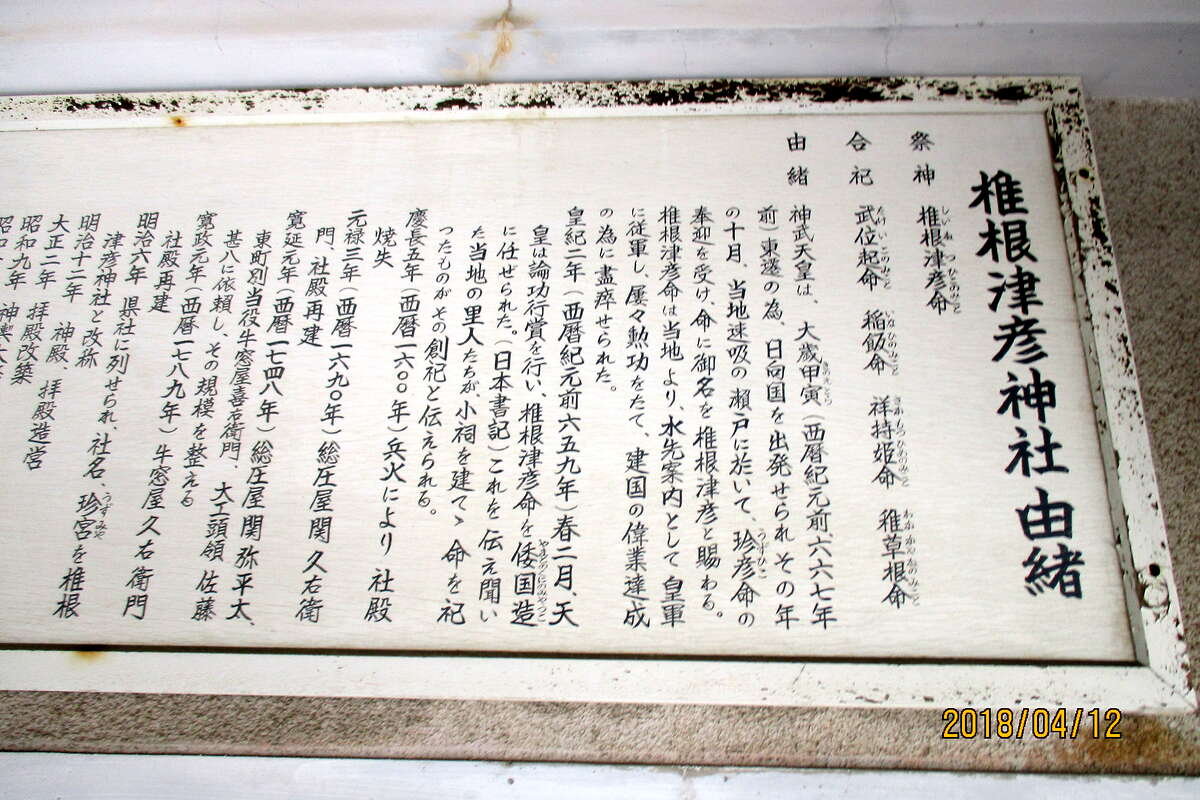 椎根津彦神社由緒
祭神 椎根津彦命
合祀 武位起命 稲飯命 祥持姫命 稚草根命
由緒 神武天皇は、大歳甲寅(西暦紀元前六六七年
前)東遷の為、日向国を出発せられその年
の十月、当地速吸の瀬戸に於いて、珍彦命の
奉迎を受け、命に御名を椎根津彦と賜わる。
椎根津彦命は当地より、水先案内として皇軍
に従軍し、屡々勲功をたて、建国の偉業達成
の為に盡瘁せられた。
皇紀二年(西暦紀元前六五九年)春二月、天
皇は論功行賞を行い、椎根津彦命を倭国造
に任せられた。(日本書記)これを伝え聞い
た当地の里人たちが、小祠を建てゝ命を祀
ったものがその創祀と伝えられる。
慶長五年(西暦一六〇〇年)兵火により社殿
焼失
元禄三年(西暦一六九〇年)総圧屋関久右衛
門、社殿再建
寛延元年(西暦一七四八年)総圧屋関弥平太、
東町別当役牛窓屋喜右衛門、大工頭領佐藤
甚八に依頼し、その規模を整える
寛政元年(西暦一七八九年)牛窓屋久右衛門
社殿再建
明治六年 県社に列せられ、社名、珍宮を椎根
津彦神社と改称
明治十二年 神殿、拝殿造営
大正二年 拝殿改築
昭和九年 神
2018/04/12